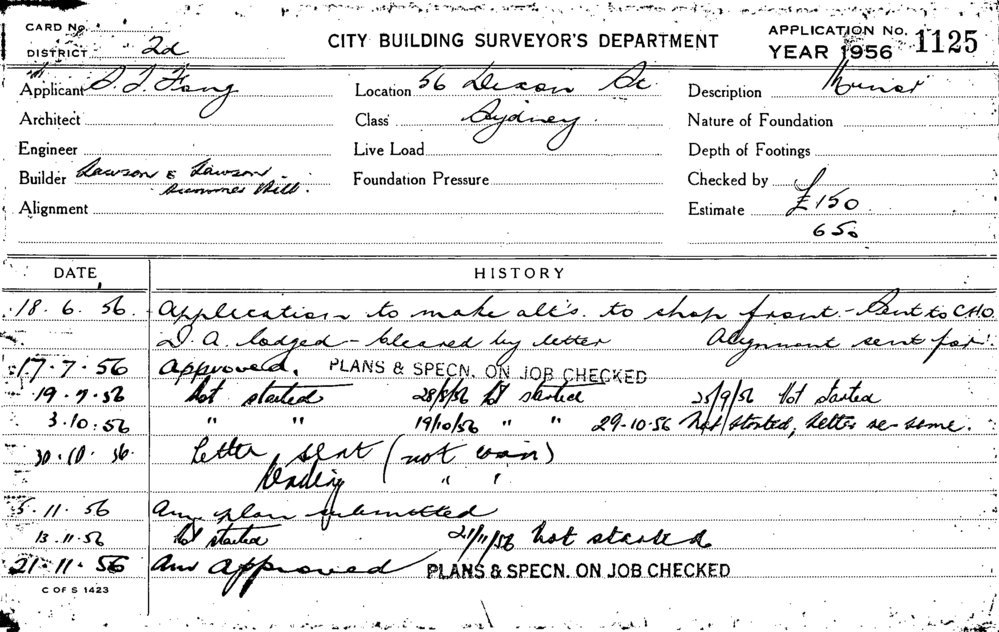 CARD No.
DISTRICT 2d
CITY BUILDING SURVEYOR'S DEPARTMENT
APPLICATION No. 1125
YEAR 1956
Applicant Fong
Location 56 Dixon St
Description Minor
Architect
Class Sydney.
Nature of Foundation
Engineer
Live Load
Depth of Footings
Builder Lawson & Lawson.
Summer Hill.
Foundation Pressure
Checked by
Alignment
Estimate £150
650
DATE HISTORY
18.6.56. Application to make alts. to shop front. - Sent to CHO.
D.A. lodged - cleared by letter Alignment sent for.
17.7.56 Approved. PLANS & SPECN. ON JOB CHECKED
19.7.56 Not started 28/8/56 Not started 25/9/56 Not started
3.10.56 " " 19/10/56 " " 29-10-56 Not started, letter re same.
30.10.56. Letter sent (not
" "
5.11.56 Am. plan submitted
13.11.56 Not started 21/11/56 Not started
21.11.56 Am Approved PLANS & SPECN. ON JOB CHECKED
C OF S 1423